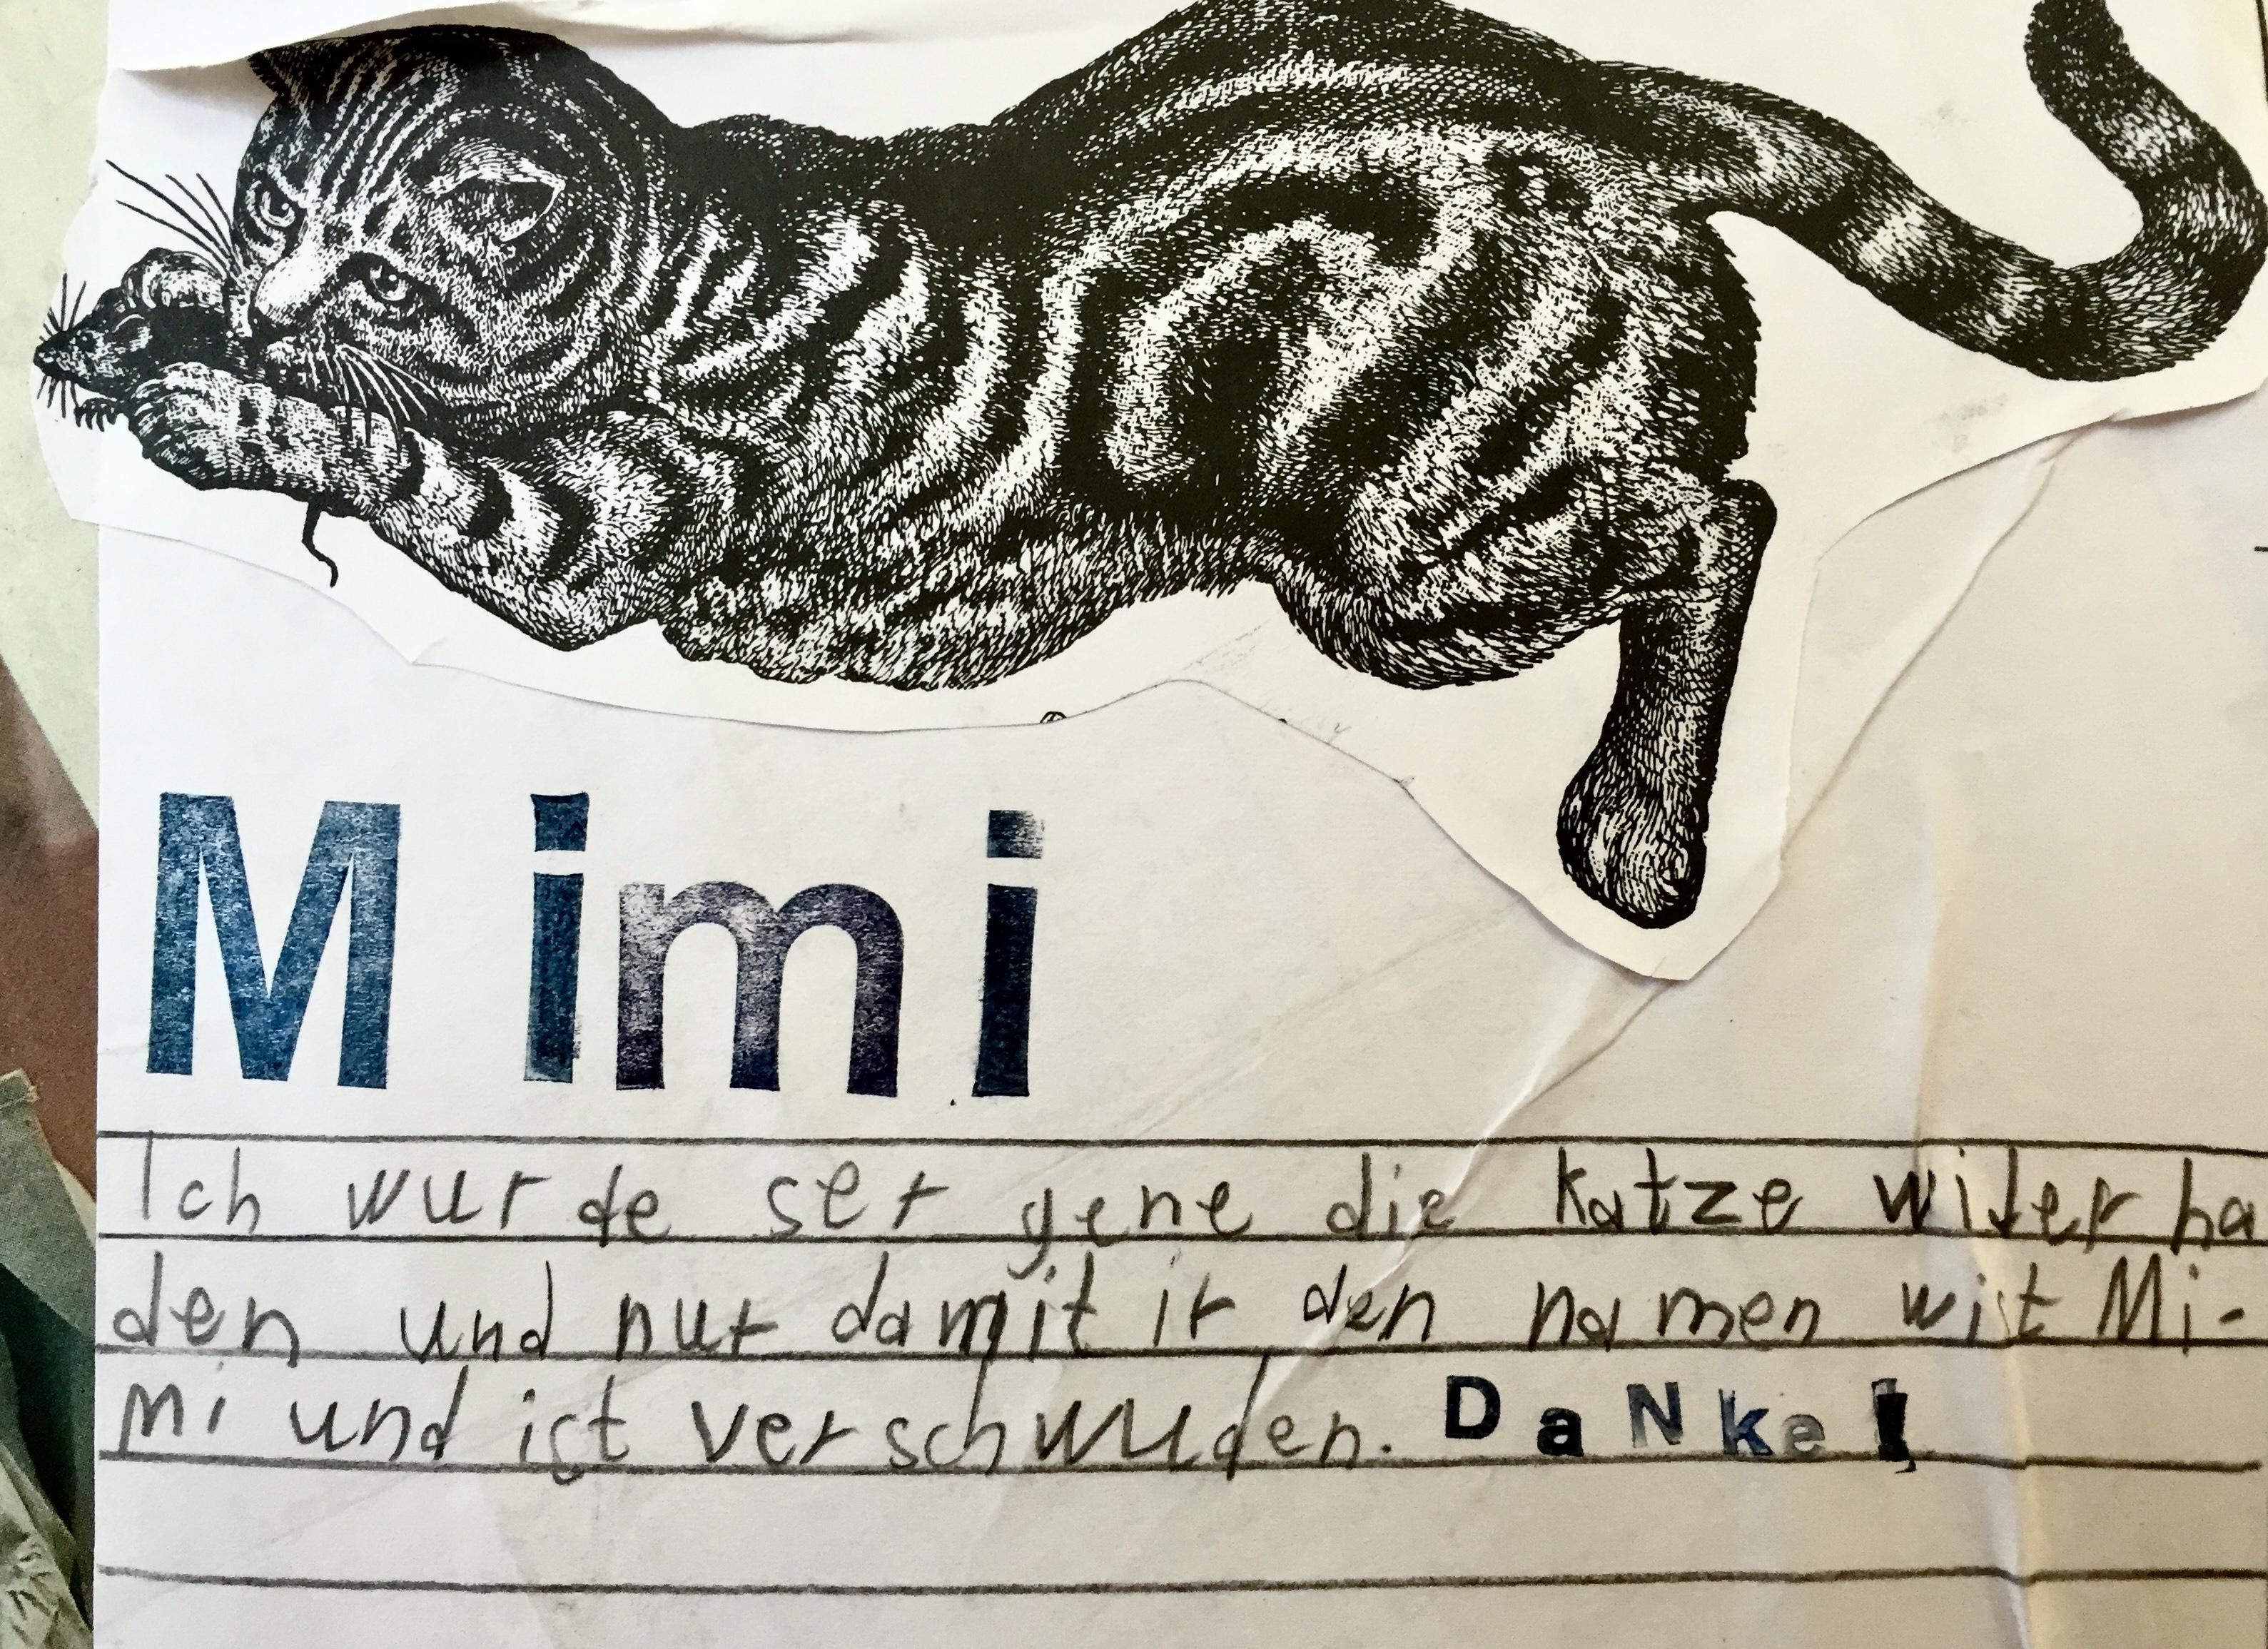 Mimi
Ich wurde ser gene die Katze wider ha
den und nur damit ir den namen wist Mi-
mi und ist verschwuden. DaNke!